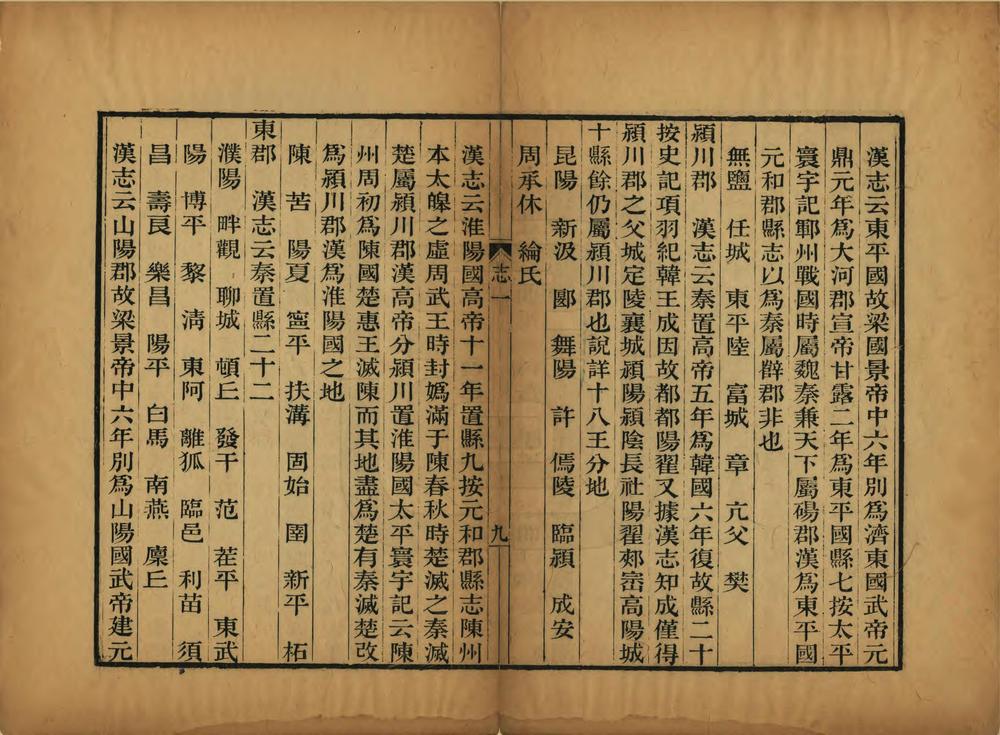 漢志云東平國故梁國景帝中六年別爲濟東國武帝元
鼎元年爲大河郡宣帝甘露二年爲東平國縣七按太平
寰宇記鄆州戰國時屬魏秦兼天下屬碭郡漢爲東平國
元和郡縣志以爲秦屬薛郡非也
無鹽 任城 東平陸 富城 章 亢父 樊
潁川郡 漢志云秦置高帝五年爲韓國六年復故縣二十
按史記項羽紀韓王成因故都都陽翟又據漢志知成僅得
潁川郡之父城定陵襄城潁陽潁陰長社陽翟郟崈高陽城
十縣餘仍屬潁川郡也說詳十八王分地
昆陽 新汲 郾 舞陽 許 傿陵 臨潁 成安
周承休 綸氏
志一
九
漢志云淮陽國高帝十一年置縣九按元和郡縣志陳州
本太皞之虛周武王時封嬀滿于陳春秋時楚滅之秦滅
楚屬潁川郡漢高帝分潁川置淮陽國太平寰宇記云陳
州周初爲陳國楚惠王滅陳而其地盡爲楚有秦滅楚改
爲潁川郡漢爲淮陽國之地
陳 苦 陽夏 寧平 扶溝 固始 圉 新平 柘
東郡 漢志云秦置縣二十二
濮陽 畔觀 聊城 頓丘 發干 范 茬平 東武
陽 博平 黎 清 東阿 離狐 臨邑 利苗 須
昌 壽良 樂昌 陽平 白馬 南燕 廩丘
漢志云山陽郡故梁景帝中六年別爲山陽國武帝建元